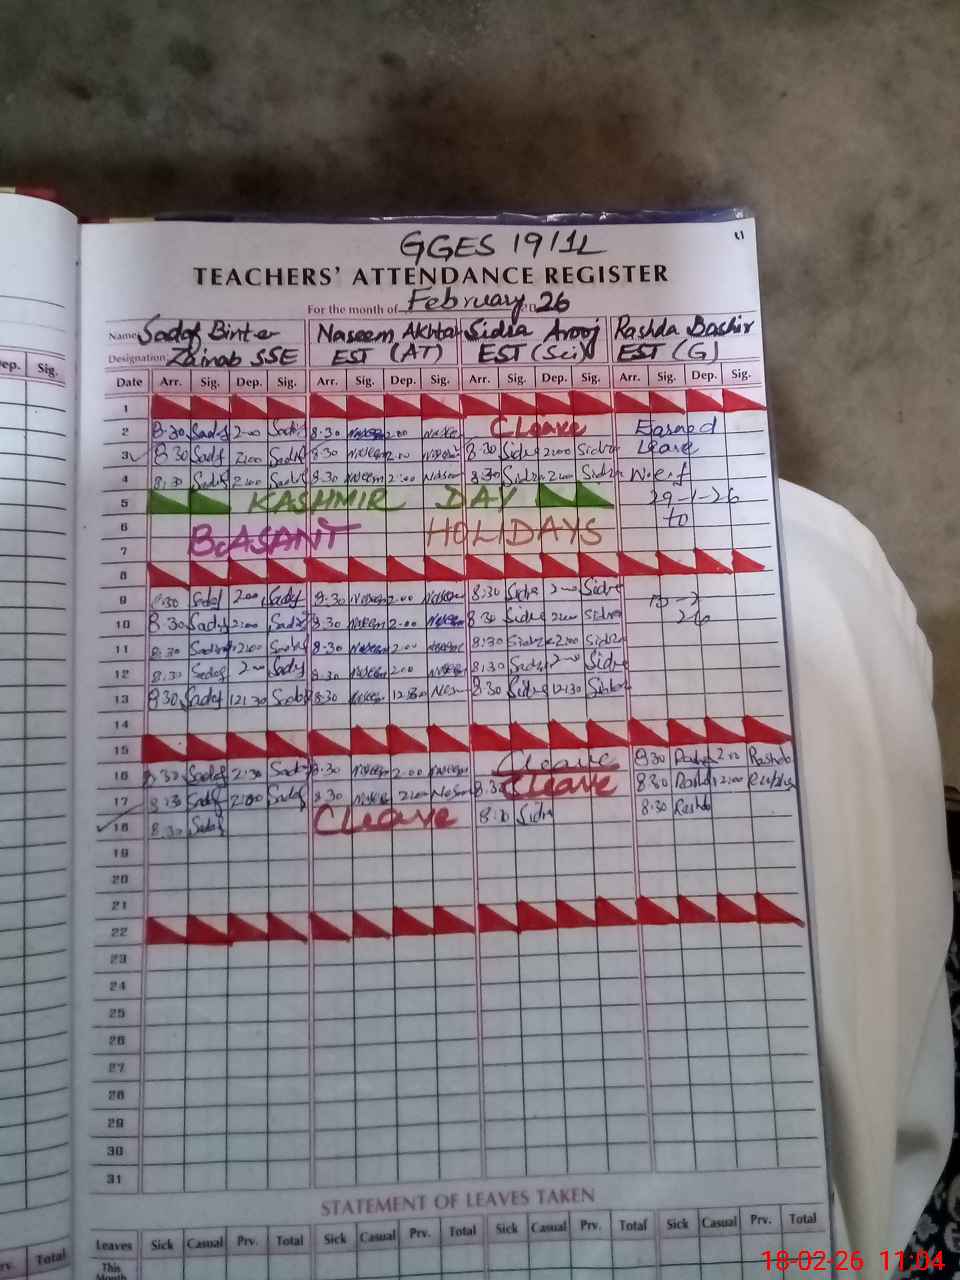 GGES 19/1L
TEACHERS' ATTENDANCE REGISTER
For the month of February 26
Name Sadaf Binte Naseem Akhtar Sidra Arooj Rashda Bashir
Designation Zainab SSE EST (AT) EST (Sci) EST (G)
ep. Sig. Date Arr. Sig. Dep. Sig. Arr. Sig. Dep. Sig. Arr. Sig. Dep. Sig. Arr. Sig. Dep. Sig.
1
2 8:30 Sadaf 2:00 Sadaf 8:30 Naseem 2:00 Naseem C Leave Earned
3 8:30 Sadaf 2:00 Sadaf 8:30 Naseem 2:00 Naseem 8:30 Sidra 2:00 Sidra Leave
4 8:30 Sadaf 2:00 Sadaf 8:30 Naseem 2:00 Naseem 8:30 Sidra 2:00 Sidra W.e.f
5 KASHMIR DAY 29-1-26
6 BASANT HOLIDAYS to
7
8
9 8:30 Sadaf 2:00 Sadaf 8:30 Naseem 2:00 Naseem 8:30 Sidra 2:00 Sidra
10 8:30 Sadaf 2:00 Sadaf 8:30 Naseem 2:00 Naseem 8:30 Sidra 2:00 Sidra 26
11 8:30 Sadaf 2:00 Sadaf 8:30 Naseem 2:00 Naseem 8:30 Sidra 2:00 Sidra
12 8:30 Sadaf 2:00 Sadaf 8:30 Naseem 2:00 Naseem 8:30 Sidra 2:00 Sidra
13 8:30 Sadaf 12:30 Sadaf 8:30 Naseem 12:30 Naseem 8:30 Sidra 12:30 Sidra
14
15
16 8:30 Sadaf 2:00 Sadaf 8:30 Naseem 2:00 Naseem C Leave 8:30 Rashda 2:00 Rashda
17 8:30 Sadaf 2:00 Sadaf 8:30 Naseem 2:00 Naseem 8:30 C Leave 8:30 Rashda 2:00
18 8:30 Sadaf C Leave 8:30 Sidra 8:30 Rashda
19
20
21
22
23
24
25
26
27
28
29
30
31
STATEMENT OF LEAVES TAKEN
Total Leaves Sick Casual Prv. Total Sick Casual Prv. Total Sick Casual Prv. Total Sick Casual Prv. Total
This
Month
18-02-26 11:04